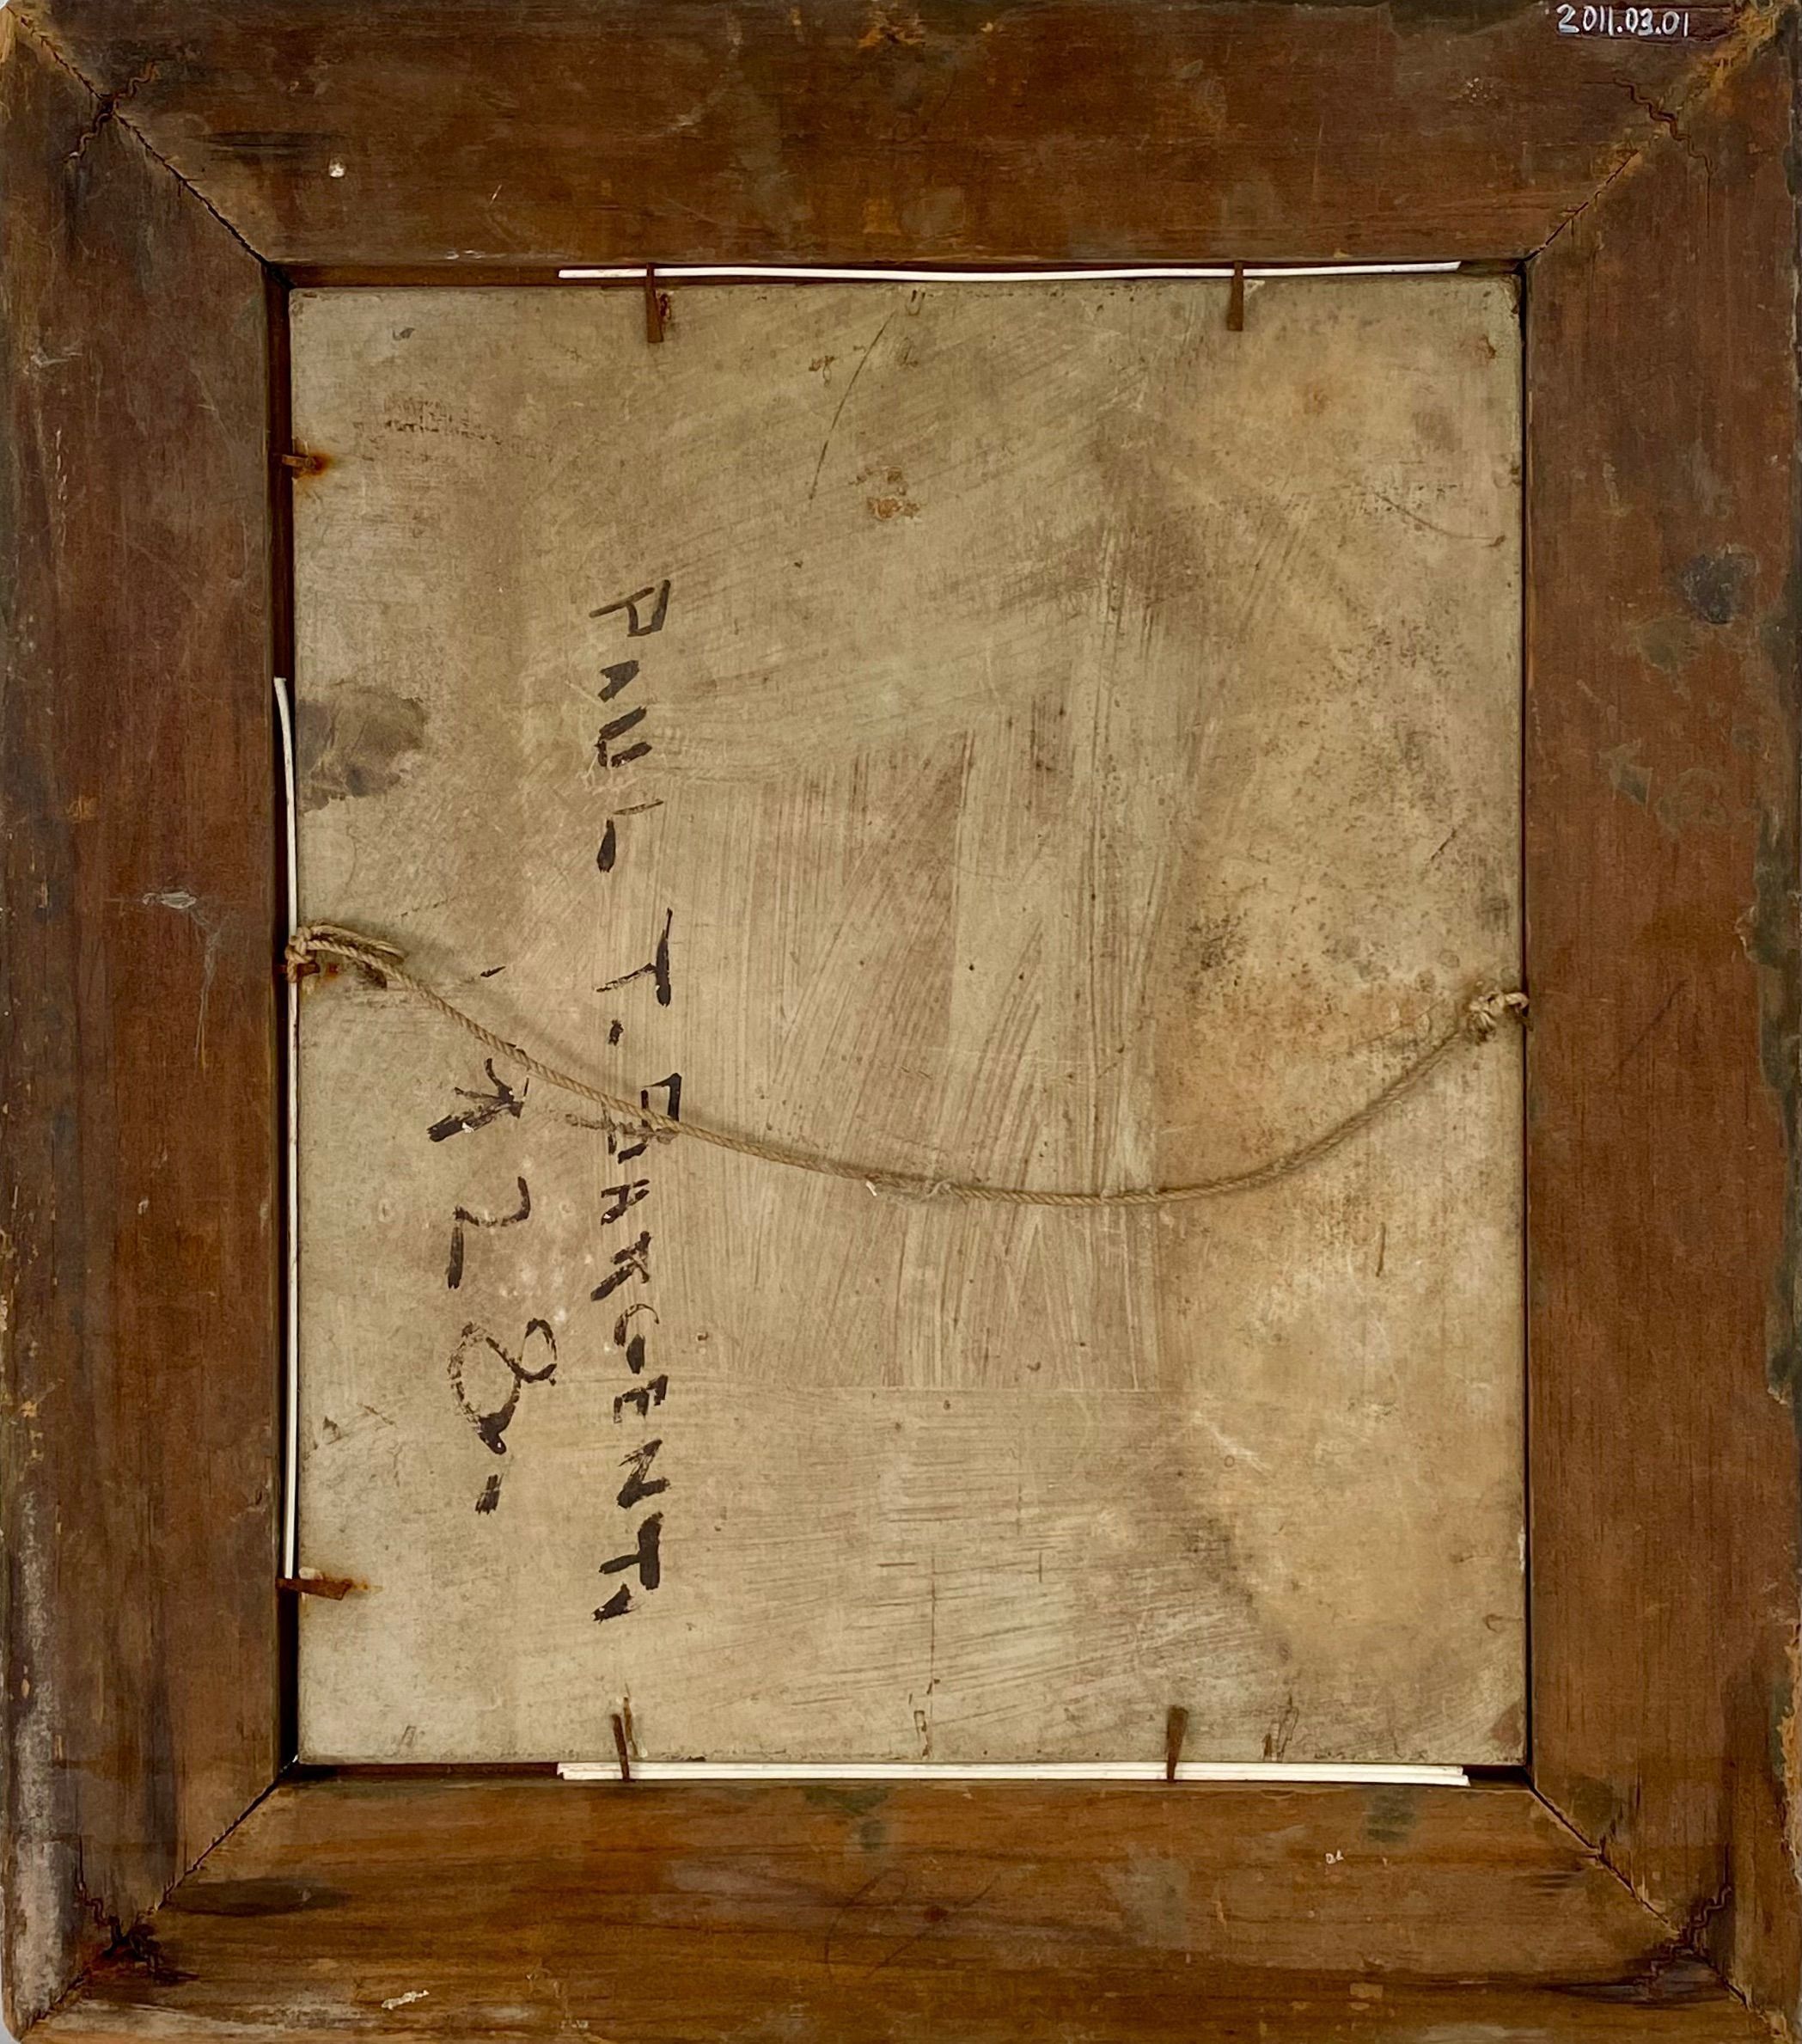 2011.03.01
PAUL T. SARGENT,
28